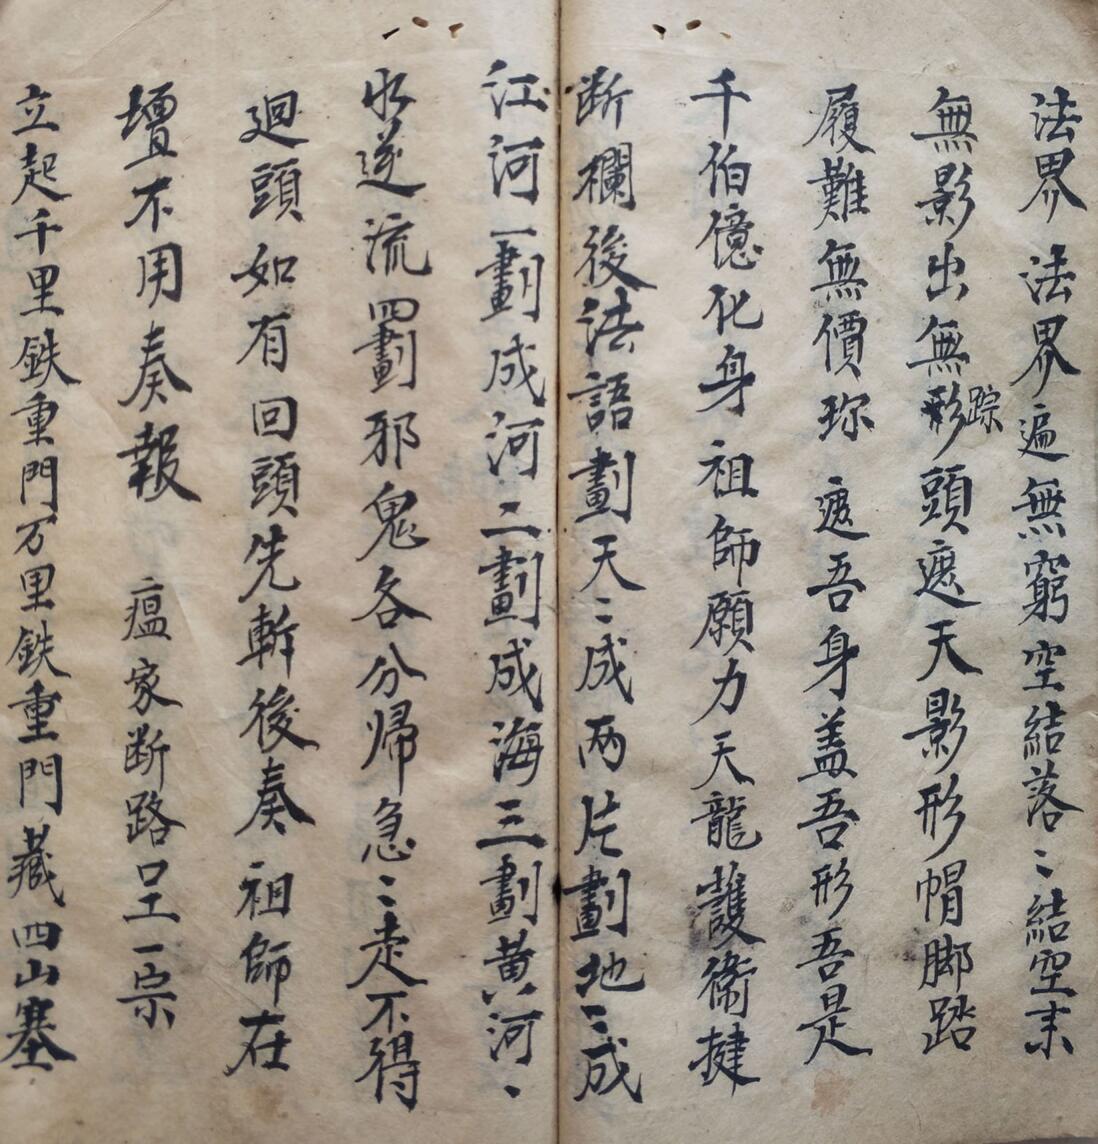 法界法界遍無窮空結落〻結空未
無影出無形踪頭遮天影形帽脚踏
履難無價珎遮吾身盖吾形吾是
千伯億化身祖師願力天龍護衛揵
断欄後法語劃天〻成两片劃地〻成
江河一劃成河二劃成海三劃黄河〻
水逆流四劃邪鬼各分帰急〻走不得
廻頭如有回頭先斬後奏祖師在
壇不用奏報 瘟家断路呈一宗
立起千里鉄重門万里鉄重門藏四山塞